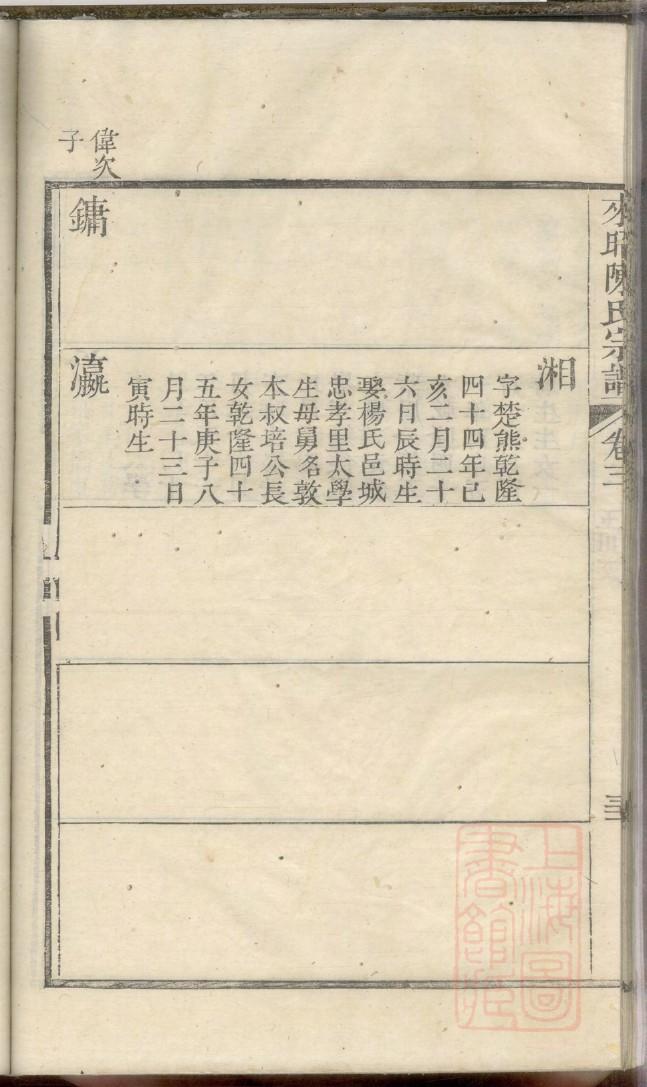 湘
字楚熊乾隆
四十四年己
亥二月二十
六日辰時生
娶楊氏邑城
忠孝里太學
生母舅名敦
本叔培公長
女乾隆四十
五年庚子八
月二十三日
寅時生
偉次
子
鏞
瀛
陳氏宗譜
卷三
上海圖
書館藏